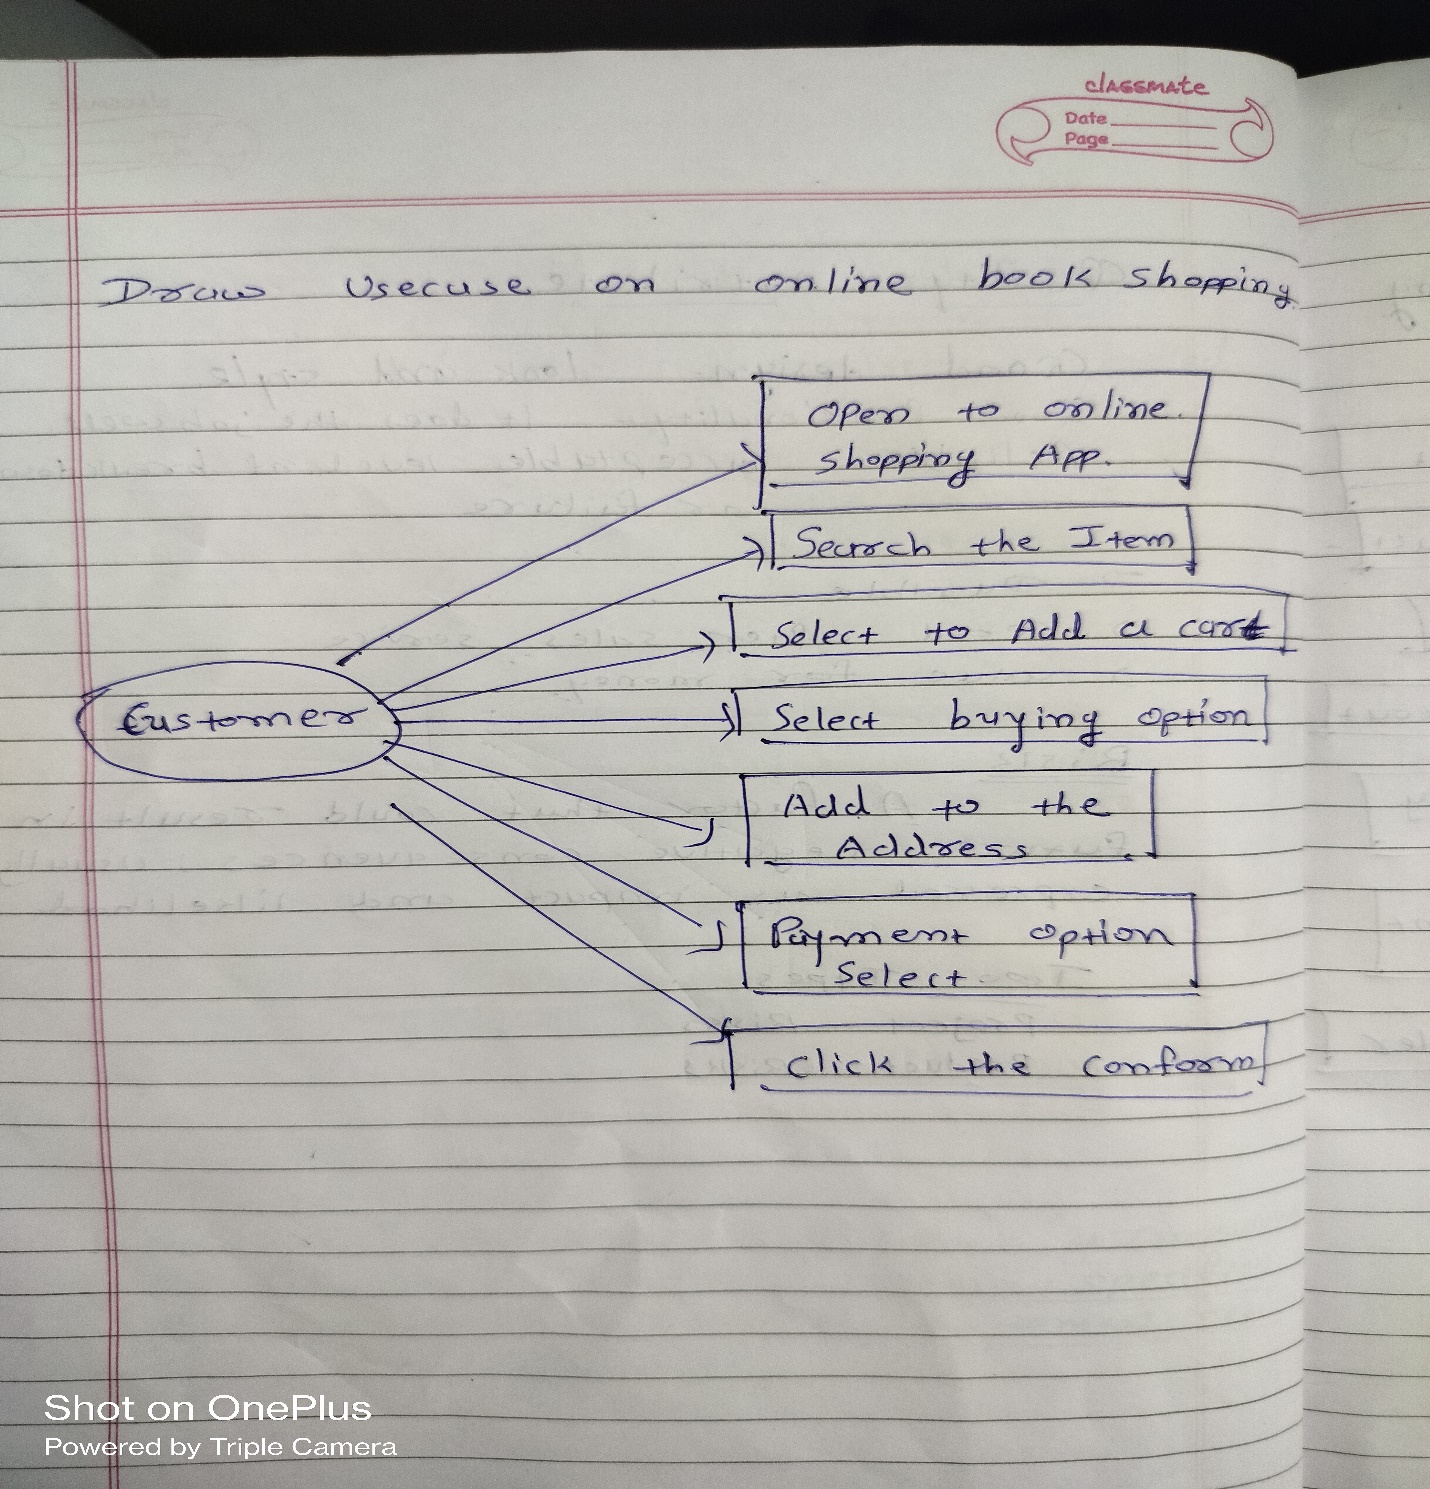 classmate
Date
Page
Draw Usecuse on online book shopping
Open to online
shopping App.
Search the Item
Select to Add a cart
Customer
Select buying option
Add to the
Address
Payment option
Select
Click the conform
Shot on OnePlus
Powered by Triple Camera